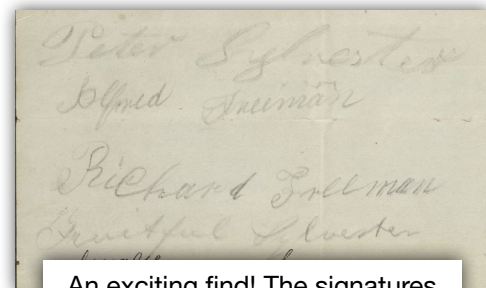 Peter Sylvester
Alfred Freeman
Richard Freeman
Fruitful Sylvester
An exciting find! The signatures